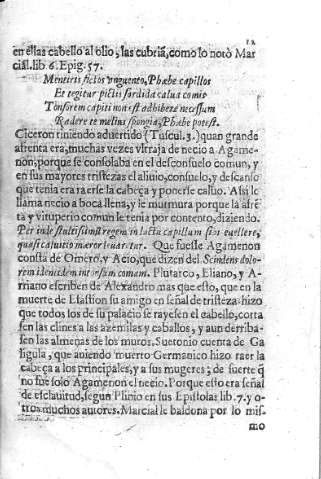 en ellas cabello al olio, las cubriã, como lo notò Mar
cial. lib. 6. Epig. 57.
Mentiris fictos vnguento, Phœbe capillos
Et tegitur pictis sordida calua comis
Tonsorem capiti non est adhibere necessum
Radere te melius spongia, Phœbe potest.
Ciceron riniendo aduertido (Tuscul. 3.) quan grande
afrenta era, muchas vezes vltraja de necio à Agame-
non, porque se consolaba en el desconsuelo comun, y
en sus mayores tristezas el aliuio, consuelo, y descanso
que tenia era raerse la cabeça y ponerse caluo. Asi le
llama necio a boca llena, y le murmura porque la afrẽ
ta y vituperio comun le tenia por contento, diziendo.
Per inde stultissimũ regem in luctu capillum sibi euellere,
quasi caluitio mæror leuaretur. Que fuesse Agamenon
consta de Omero, y Acio, que dizen del Scindens dolo-
rem identidem intonsam comam. Plutarco, Eliano, y A-
rriano escriben de Alexandro mas que esto, que en la
muerte de Efastion su amigo en señal de tristeza hizo
que todos los de su palacio se rayesen el cabello, corta
sen las clines a las azemilas y caballos, y aun derriba-
sen las almenas de los muros. Suetonio cuenta de Ca
ligula, que auiendo muerto Germanico hizo raer la
cabeça a los principales, y a sus mugeres; de suerte q̃
no fue solo Agamenon el necio. Porque esto era señal
de esclauitud, segun Plinio en sus Epistolas lib. 7. y o-
tros muchos autores. Marcial le baldona por lo mis-
mo